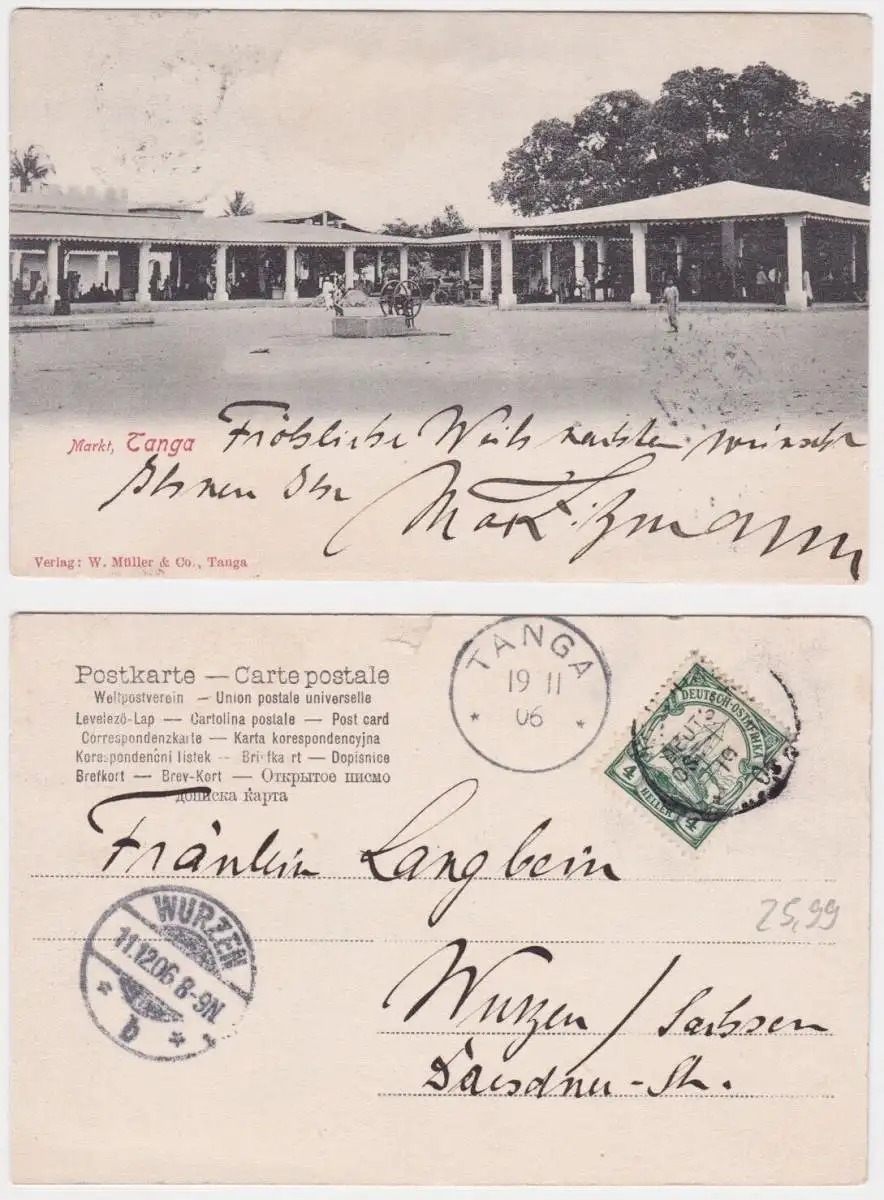 Markt, Tanga
Fröhliche Weihnachten wünscht
Ihnen Ihr
Verlag: W. Müller & Co., Tanga
Postkarte — Carte postale
Weltpostverein — Union postale universelle
Levelező-Lap — Cartolina postale — Post card
Correspondenzkarte — Karta korespondencyjna
Korespondenční listek — Briefkaart — Dopisnice
Brefkort — Brev-Kort — Открытое письмо
дописна карта
TANGA
19 11
06
DEUTSCH-OSTAFRIKA
4
HELLER
4
Fräulein Langbein
WURZEN
11.12.06 8-9N.
b
25,99
Wurzen / Sachsen
Dresdner-Str.